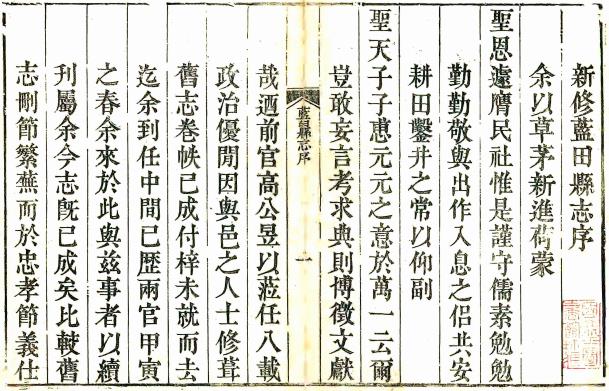 新修藍田縣志序
余以草茅新進荷蒙
聖恩遽膺民社惟是謹守儒素勉勉
勤勤敬與出作入息之侶共安
耕田鑿井之常以仰副
聖天子子惠元元之意於萬一云爾
豈敢妄言考求典則博徵文獻
藍田縣志序
一
哉迺前官高公昱以蒞任八載
政治優閒因與邑之人士修葺
舊志卷帙已成付梓未就而去
迄余到任中間已歷兩官甲寅
之春余來於此與兹事者以續
刋屬余今志旣已成矣比較舊
志刪節繁蕪而於忠孝節義仕